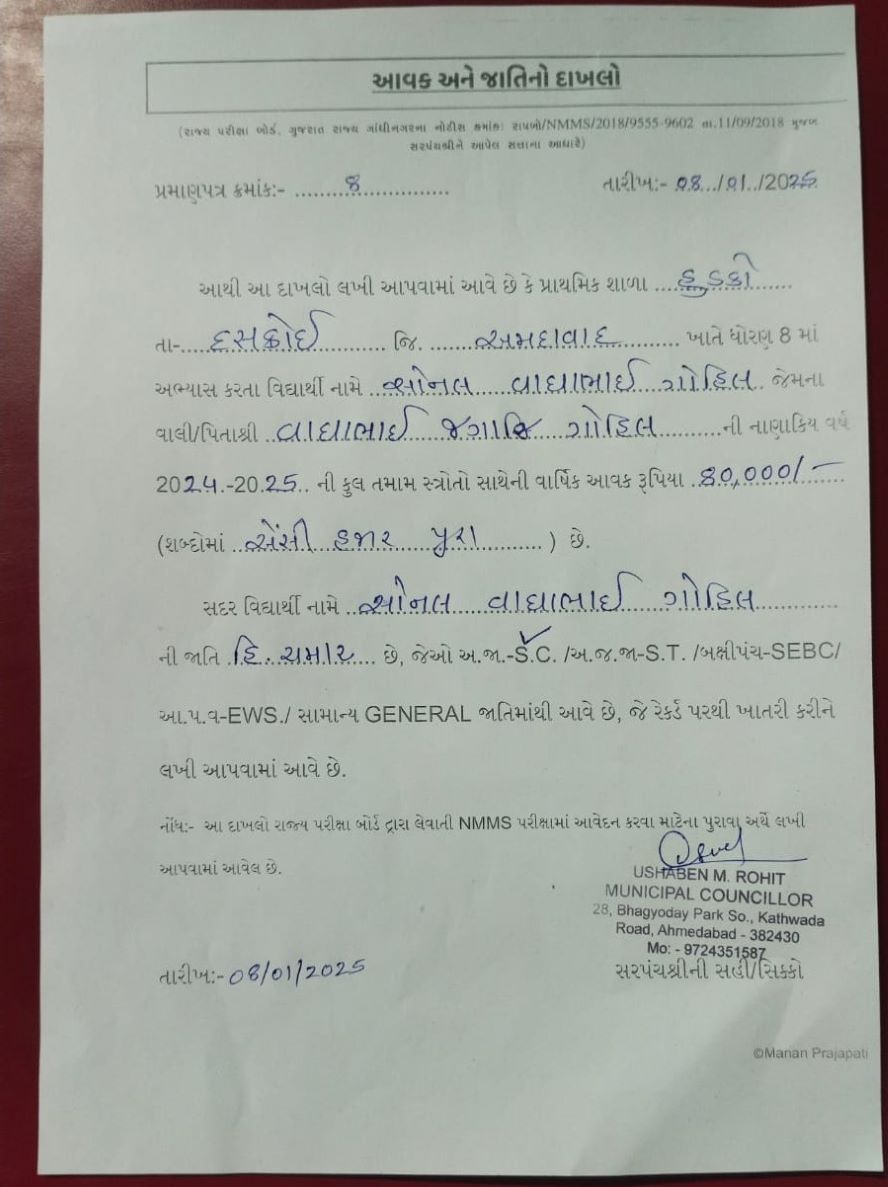 આવક અને જાતિનો દાખલો
(રાજ્ય પરીક્ષા બોર્ડ, ગુજરાત રાજ્ય ગાંધીનગરના નોટીસ ક્રમાંક: રાપબો/NMMS/2018/9555-9602 તા.11/09/2018 મુજબ
સરપંચશ્રીને આપેલ સત્તાના આધારે)
પ્રમાણપત્ર ક્રમાંક:- ........8............... તારીખ:- 08.../01../2025
આથી આ દાખલો લખી આપવામાં આવે છે કે પ્રાથમિક શાળા ....હુડકો......
તા-......દસક્રોઈ......... જિ. .......અમદાવાદ......... ખાતે ધોરણ 8 માં
અભ્યાસ કરતા વિદ્યાર્થી નામે ..સોનલ.... વાઘાભાઈ ગોહિલ.. જેમના
વાલી/પિતાશ્રી ..વાઘાભાઈ.... જગાજિ.... ગોહિલ.........ની નાણાકિય વર્ષ
2024.-20.25.. ની કુલ તમામ સ્ત્રોતો સાથેની વાર્ષિક આવક રૂપિયા ..80,000/-
(શબ્દોમાં ..એંસી... હજાર.... પુરા......... ) છે.
સદર વિદ્યાર્થી નામે ..સોનલ.... વાઘાભાઈ.... ગોહિલ............
ની જાતિ .હિ..ચમાર.... છે, જેઓ અ.જા.-S.C. /અ.જ.જા-S.T. /બક્ષીપંચ-SEBC/
આ.પ.વ-EWS./ સામાન્ય GENERAL જાતિમાંથી આવે છે, જે રેકર્ડ પરથી ખાતરી કરીને
લખી આપવામાં આવે છે.
નોંધ:- આ દાખલો રાજ્ય પરીક્ષા બોર્ડ દ્વારા લેવાતી NMMS પરીક્ષામાં આવેદન કરવા માટેના પુરાવા અર્થે લખી
આપવામાં આવેલ છે.
USHABEN M. ROHIT
MUNICIPAL COUNCILLOR
28, Bhagyoday Park So., Kathwada
Road, Ahmedabad - 382430
Mo: - 9724351587
તારીખ:- 08/01/2025 સરપંચશ્રીની સહી/સિક્કો
©Manan Prajapati